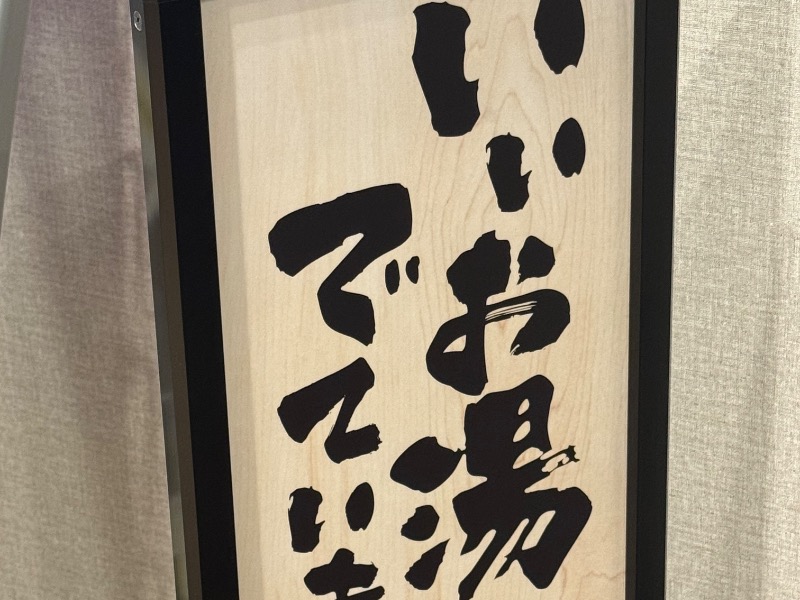 いいお湯
でてい